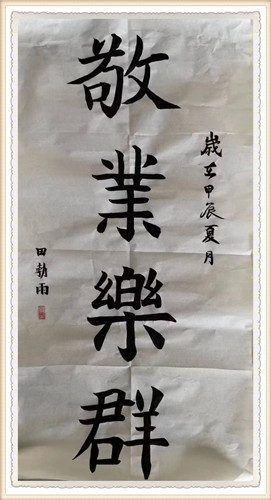 敬業樂群
歲在甲辰夏月
田勃雨